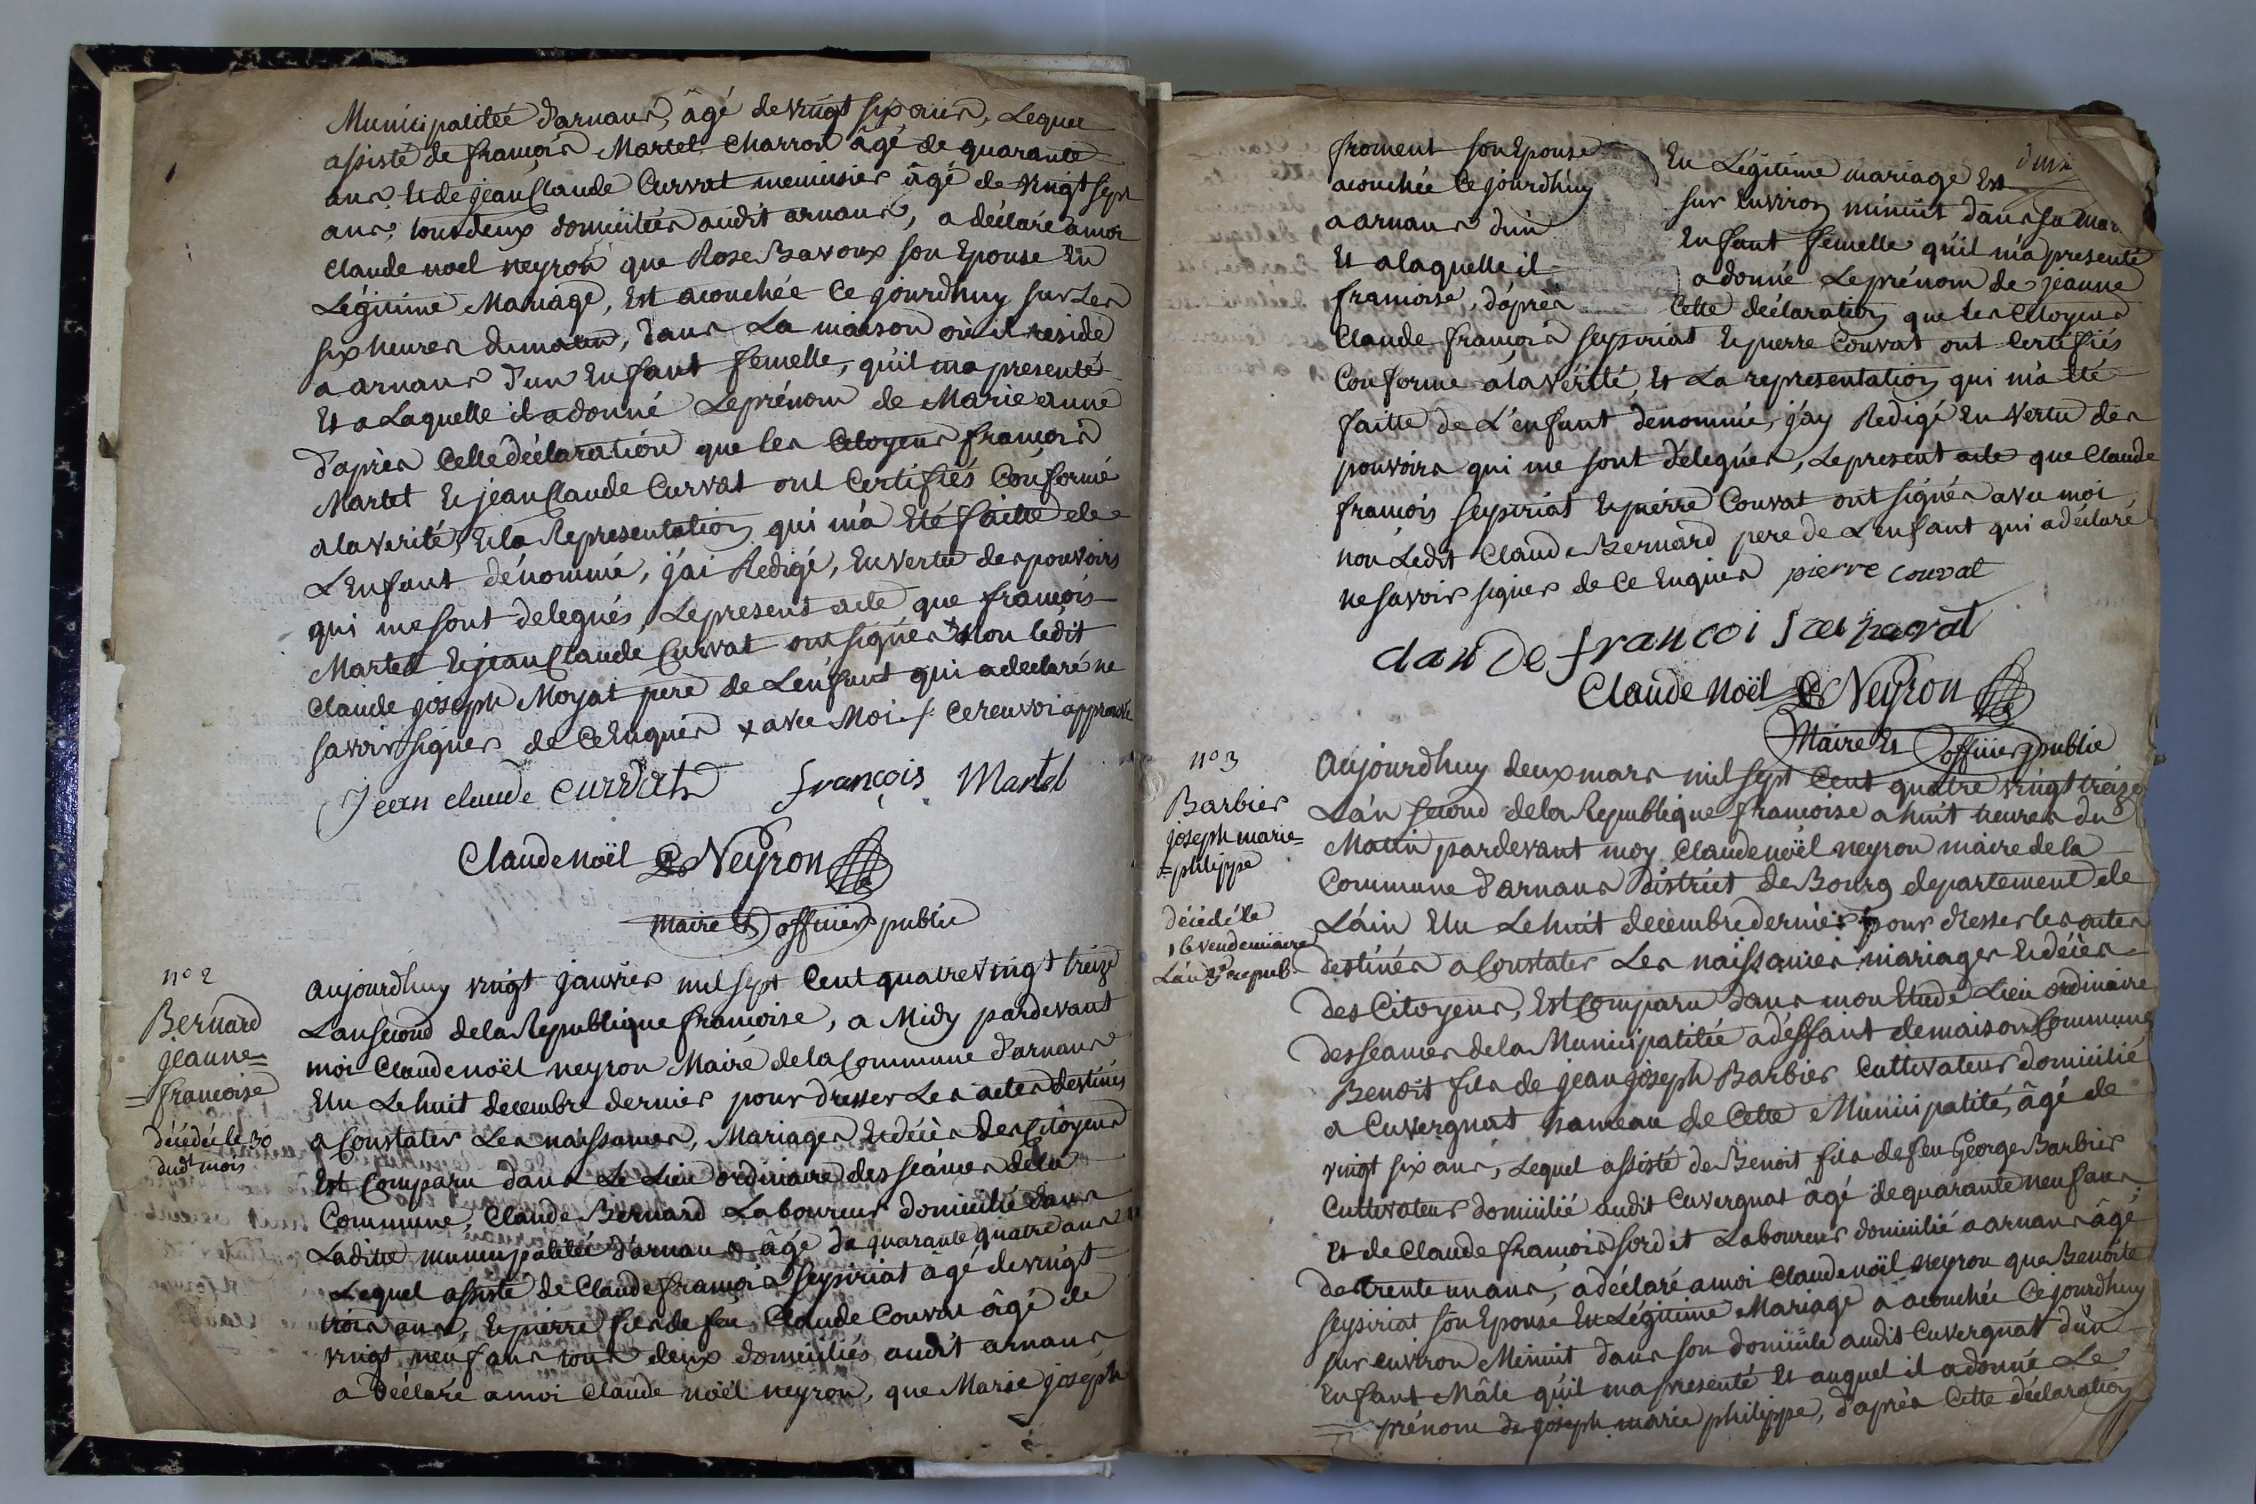 Municipalitée d'arnans, âgé de vingt six ans, Lequel
assisté de françois Martel Charron âgé de quarante
ans Et de jean Claude Curvat menuisier âgé de vingt sept
ans, tous deux domiciliés audit arnans, a déclaré a moi
Claude noel neyron que Rose Bavoux son Epouse En
Légitime Mariage, Est acouchée Ce jourdhuy sur Les
six heures du matin, dans La maison où il reside
a arnans d'un Enfant femelle, qu'il ma presenté
Et a Laquelle il a donné Le prénom de Marie anne
d'après Cette déclaration que les Citoyens françois
Martel Et jean Claude Curvat ont Certifiés Conforme
a la verité, Et la Representation qui m'a Eté faitte de
L'Enfant dénommé, j'ai Redigé, En vertu des pouvoirs
qui me sont delegués, Le present acte que françois
Martel Et jean Claude Curvat ont signés x Non ledit
Claude joseph Moyat pere de L'enfant qui a declaré ne
savoir signer de Ce Enquis x avec Moi /. Ce renvoi approuvé
Jean claude curvat françois Martel
Claude Noël Neyron
Maire Et officier public
n° 2
Bernard
jeanne=
=françoise
décédée le 30
dud.t mois
aujourdhuy vingt janvier mil sept Cent quatre vingt treize
L'an second de la Republique françoise, a Midy pardevant
moi Claude noël neyron Maire de la Commune d'arnans
Elu Le huit decembre dernier pour dresser Les actes destinés
a Constater Les naissances, Mariages Et décès des Citoyens
Est Comparu dans Le Lieu ordinaire des séances de la
Commune, Claude Bernard Laboureur domicilié dans
Ladite municipalitée d'arnans âgé de quarante quatre ans
Lequel assisté de Claude françois seyssiriat âgé de vingt
trois ans, Et pierre fils de feu Claude Couvat âgé de
vingt neuf ans tous deux domiciliés audit arnans
a déclaré a moi Claude noël neyron, que Marie joseph
froment son Epouse En Légitime mariage Est
acouchée Ce jourdhuy sur Environ minuit dans sa
a arnans d'un Enfant femelle qu'il m'a presenté
Et a laquelle il a donné Le prénom de jeanne
françoise, d'après Cette déclaration que les Citoyens
Claude françois seyssiriat Et pierre Couvat ont Certifiés
Conforme a la vérité, Et La representation qui m'a été
faitte de L'enfant denommée, j'ay Redigé En vertu des
pouvoirs qui me sont délegués, Le present acte que Claude
françois seyssiriat Et pierre Couvat ont signés avec moi
non Ledit Claude Bernard pere de L'enfant qui a déclaré
ne savoir signer de Ce Enquis pierre couvat
claude francoi
Claude Noël Neyron
Maire Et officier public
n° 3
Barbier
joseph marie=
=philippe
décédé le
16 vendemiaire
L'an 3e repub.
aujourdhuy deux mars mil sept Cent quatre vingt treize
L'an second de la Republique françoise a huit heures du
Matin pardevant moy Claude noël neyron maire de la
Commune d'arnans district de Bourg departement de
L'ain Elu Le huit decembre dernier pour dresser les actes
destinés a Constater Les naissances mariages Et décès
des Citoyens, Est Comparu dans mon Etude Lieu ordinaire
des seances de la Municipalitée a deffaut de maison Commune
Benoit fils de jean joseph Barbier Cultivateur domicilié
a Cuvergnat hameau de Cette Municipalité, âgé de
vingt six ans, Lequel assisté de Benoit fils de feu George Barbier
Cultivateur domicilié audit Cuvergnat âgé de quarante neuf ans
Et de Claude françois sordet Laboureur domicilié a arnans âgé
de trente un ans, a déclaré a moi Claude noël neyron que Benoite
seyssiriat son Epouse En Légitime Mariage a acouchée Ce jourdhuy
sur environ Minuit dans son domicile audit Cuvergnat d'un
Enfant Mâle qu'il ma presenté Et auquel il a donné Le
prénom de joseph marie philippe, d'après Cette déclaration